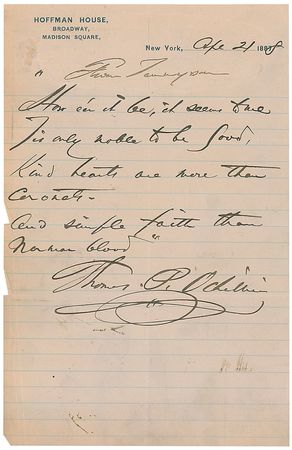 HOFFMAN HOUSE,
BROADWAY,
MADISON SQUARE,
New York, Apr 21 1888
" From Tennyson
How e'er it be, it seems to me
Tis only noble to be Good,
Kind hearts are more than
Coronets -
And simple faith than
Norman blood "
Thomas P. Ochiltree